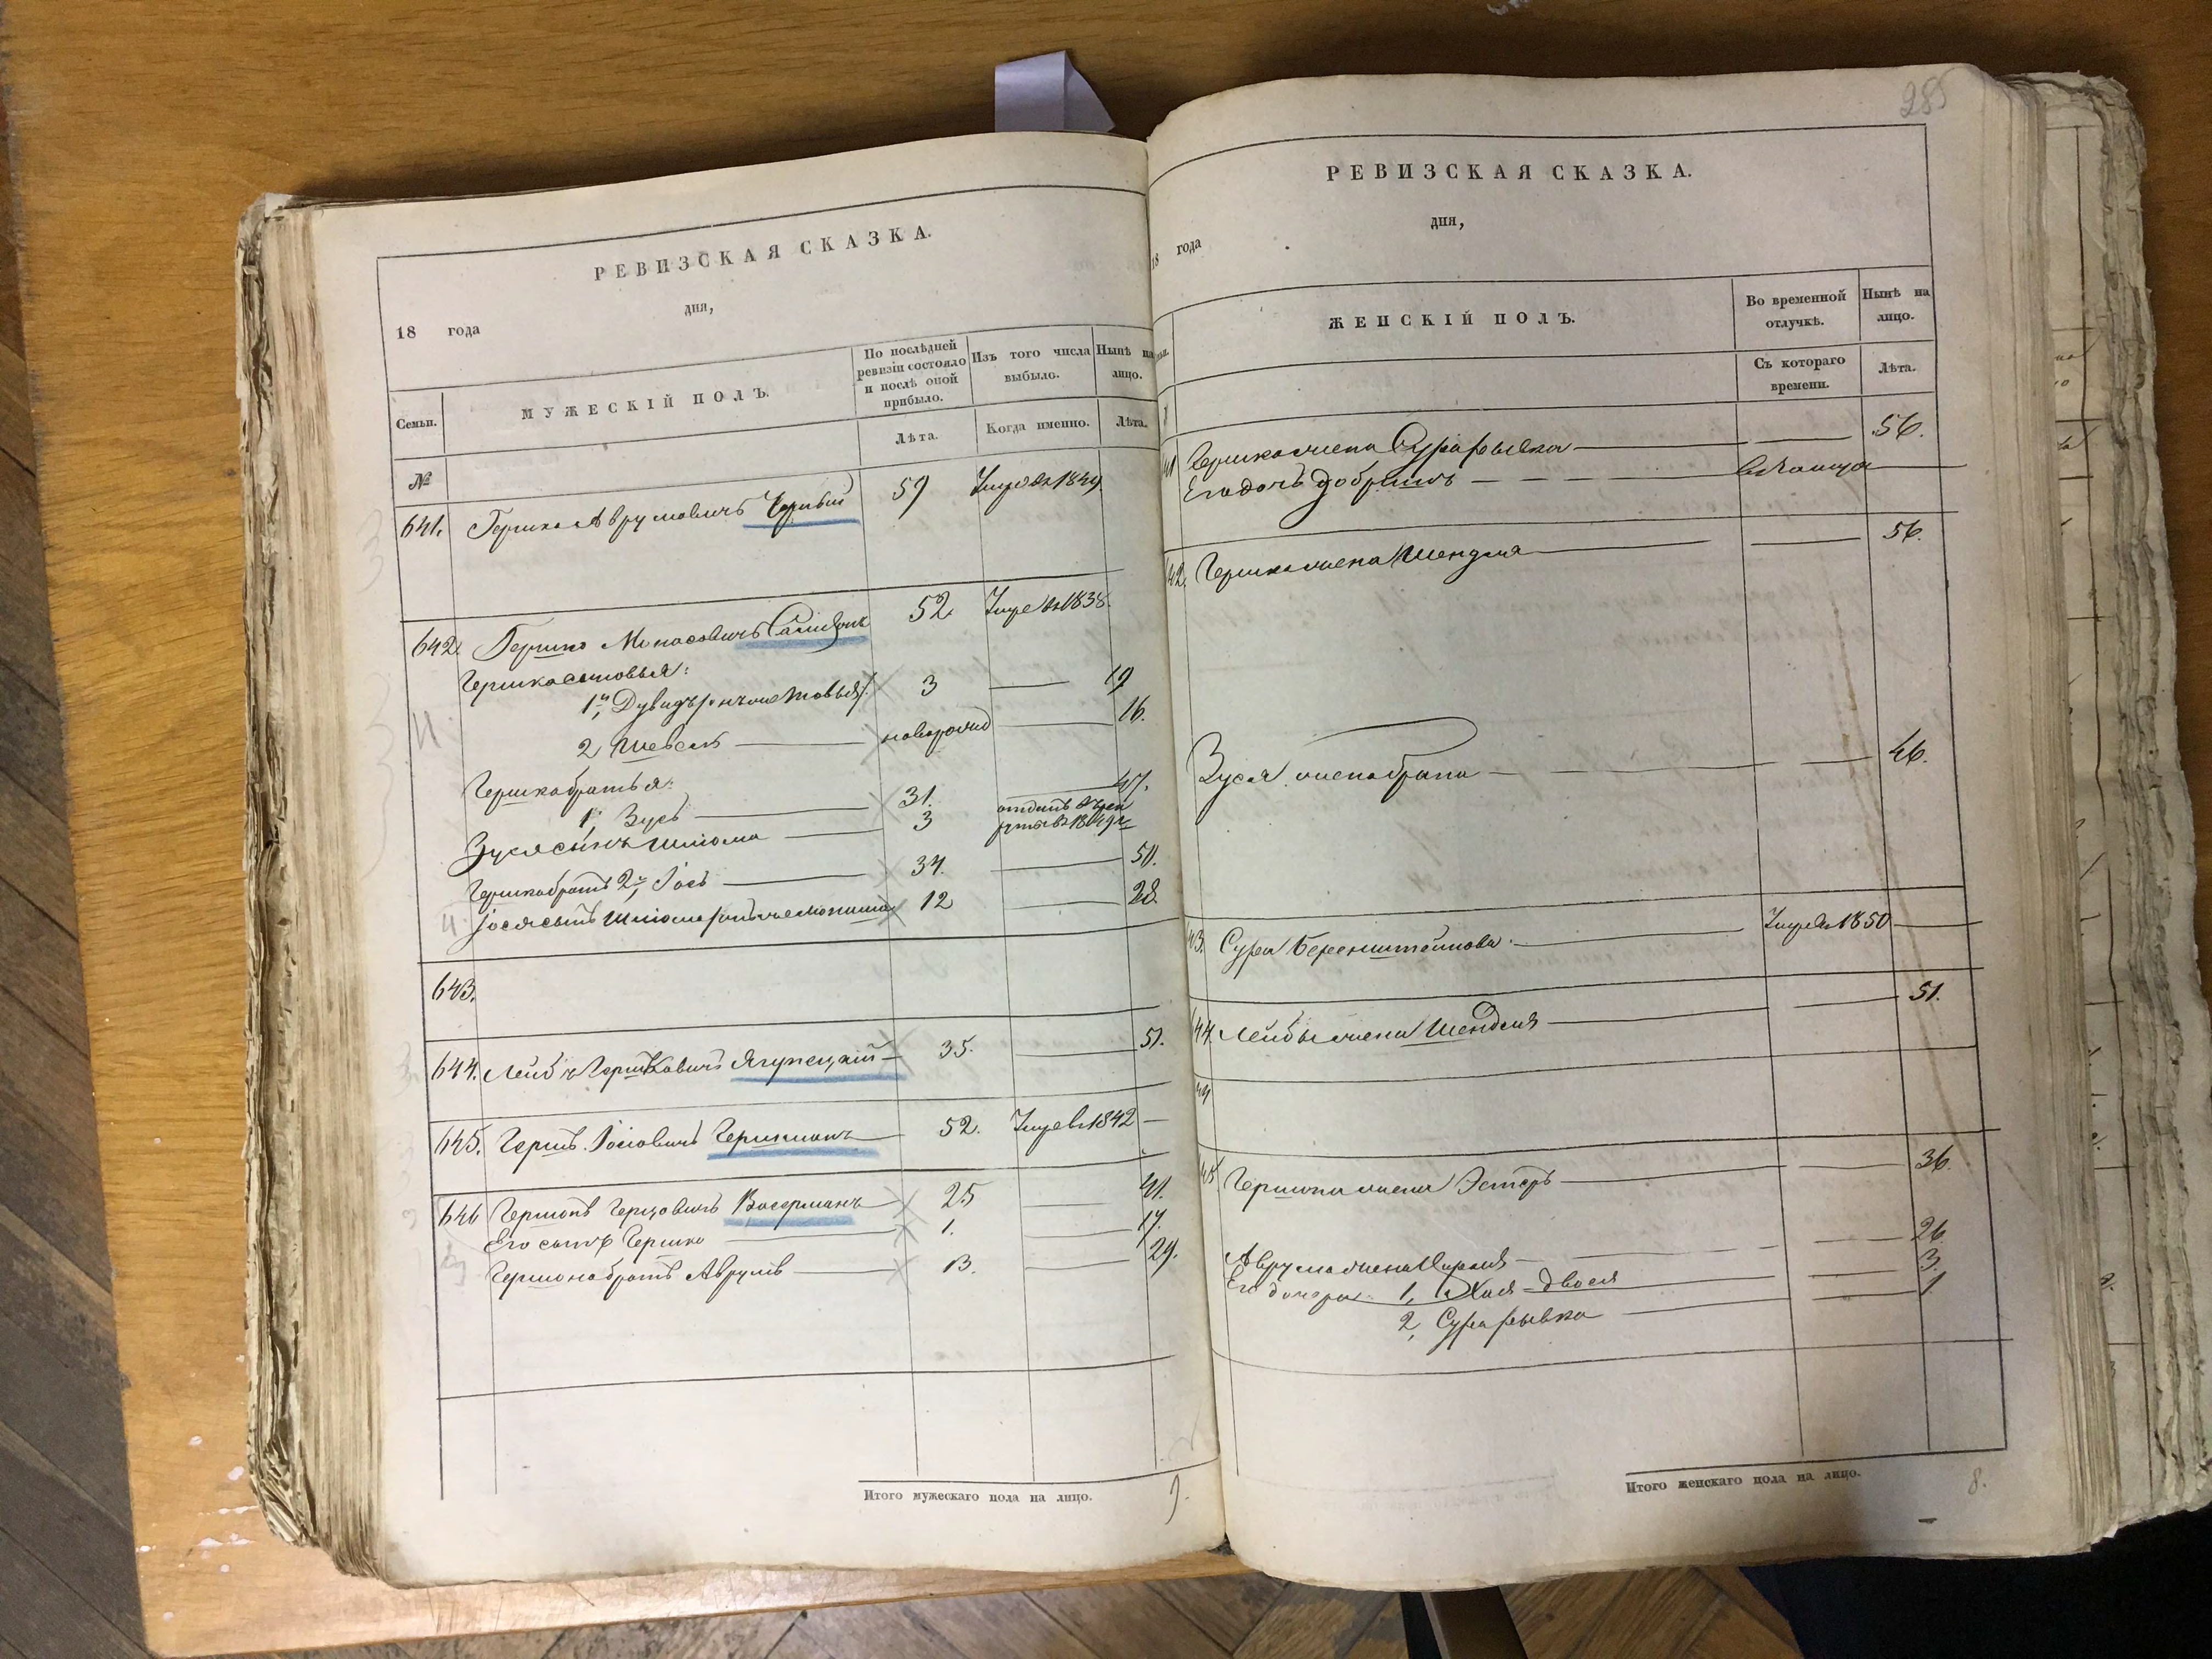 РЕВИЗСКАЯ СКАЗКА.
18 года
дня,
Семьи.
МУЖЕСКІЙ ПОЛЪ.
По послѣдней ревизіи состояло и послѣ оной прибыло.
Изъ того числа выбыло.
Нынѣ на лицо.
№
Лѣта.
Когда именно.
Лѣта.
641. Гершко Аврумовичъ Чорный 59 Умре въ 1849
642. Гершко Монасовичъ 52. Умре въ 1838.
Гершка сыновья:
1й, Дувидъ 3 — 19
2, Шевель — новорожд — 16.
Гершка братья:
1, Зусь — 31. — 47.
Зуся сынъ Шліома — 3 отданъ въ рекруты въ 1849
Гершка братъ 2й, Іось — 34. — 50.
Іося сынъ Шліома 12 — 28.
643.
644. Лейба Гершковичъ Ягупецкій — 35. — 51.
645. Гершъ Іосіовичъ Гершманъ — 52. Умре въ 1842 —
646 Гершонъ Герцовичъ Васерманъ — 25 — 41.
Его сынъ Гершко — 1. — 17.
Гершона братъ Аврумъ — 13. — 29.
Итого мужескаго пола на лицо. 9.
285
РЕВИЗСКАЯ СКАЗКА.
18 года
дня,
ЖЕНСКІЙ ПОЛЪ.
Во временной отлучкѣ.
Нынѣ на лицо.
Съ котораго времени.
Лѣта.
41 Гершка жена Сура Рывка — — 56.
Его дочь Добришъ — — —
42. Гершка жена Шендля — — 56.
Зуся жена брата — — — 46.
43. Сура Беренштейнова — Умре въ 1850 —
44. Лейбы жена Шендля — — 51.
45 Гершона жена Эстеръ — — 36.
Аврума жена — — 26.
Его дочери 1, Хая-Двося — 3.
2, Сура Рывка — — 1
Итого женскаго пола на лицо. 8.